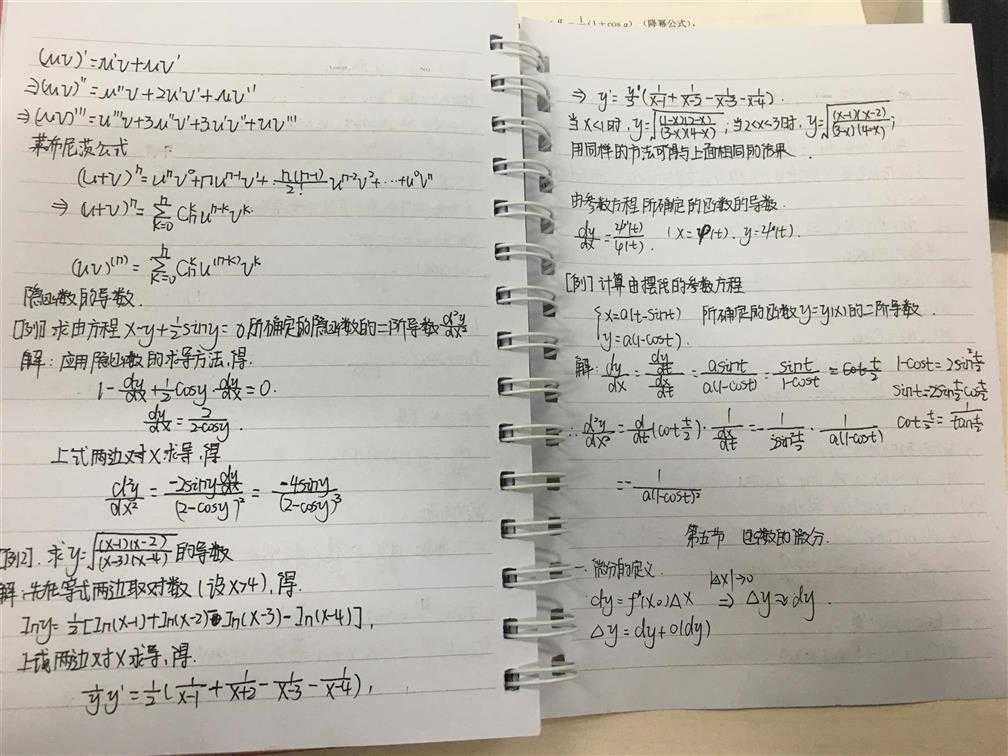 (uv)'=u'v+uv'
⇒(uv)''=u''v+2u'v'+uv''
⇒(uv)'''=u'''v+3u''v'+3u'v''+uv'''
莱布尼茨公式
(u+v)^n=u^n v^0+nu^{n-1}v^1+\frac{n(n-1)}{2!}u^{n-2}v^2+…+u^0v^n
⇒ (u+v)^n=\sum_{k=0}^{n}C_n^k u^{n-k}v^k.
(uv)^{(n)}=\sum_{k=0}^{n}C_n^k u^{(n-k)}v^k
隐函数的导数.
[例1] 求由方程 x-y+\frac{1}{2}siny=0所确定的隐函数的二阶导数\frac{d^2y}{dx^2}
解:应用隐函数的求导方法,得.
1-\frac{dy}{dx}+\frac{1}{2}cosy·\frac{dy}{dx}=0.
\frac{dy}{dx}=\frac{2}{2-cosy}.
上式两边对x求导,得
\frac{d^2y}{dx^2}=\frac{-2siny\frac{dy}{dx}}{(2-cosy)^2}=\frac{-4siny}{(2-cosy)^3}
[例2]. 求y=\sqrt{\frac{(x-1)(x-2)}{(x-3)(x-4)}}的导数
解:先在等式两边取对数(设x>4),得.
lny=\frac{1}{2}[ln(x-1)+ln(x-2)-ln(x-3)-ln(x-4)],
上式两边对x求导,得.
\frac{1}{y}y'=\frac{1}{2}(\frac{1}{x-1}+\frac{1}{x+2}-\frac{1}{x-3}-\frac{1}{x-4}),
\frac{1}{2}(1+cosα) (降幂公式).
⇒ y'=\frac{y}{2}(\frac{1}{x-1}+\frac{1}{x-2}-\frac{1}{x-3}-\frac{1}{x-4}).
当x<1时,y=\sqrt{\frac{(1-x)(2-x)}{(3-x)(4-x)}};当2<x<3时,y=\sqrt{\frac{(x-1)(x-2)}{(3-x)(4-x)}};
用同样的方法可得与上面相同的结果.
由参数方程所确定的函数的导数.
\frac{dy}{dx}=\frac{ψ'(t)}{φ'(t)}. (x=φ(t). y=ψ(t).
[例] 计算由摆线的参数方程
{x=a(t-sint) 所确定的函数y=y(x)的二阶导数.
y=a(1-cost).
解:\frac{dy}{dx}=\frac{\frac{dy}{dt}}{\frac{dx}{dt}}=\frac{asint}{a(1-cost)}=\frac{sint}{1-cost}=cot\frac{t}{2} 1-cost=2sin^2\frac{t}{2}
sint=2sin\frac{t}{2}cos\frac{t}{2}
∴\frac{d^2y}{dx^2}=\frac{d}{dt}(cot\frac{t}{2})·\frac{1}{\frac{dx}{dt}}=-\frac{1}{2sin^2\frac{t}{2}}·\frac{1}{a(1-cost)} cot\frac{t}{2}=\frac{1}{tan\frac{t}{2}}
=-\frac{1}{a(1-cost)^2}
第五节 函数的微分.
一. 微分的定义.
|Δx|→0
dy=f'(x_0)Δx ⇒ Δy≈dy.
Δy=dy+o(dy)